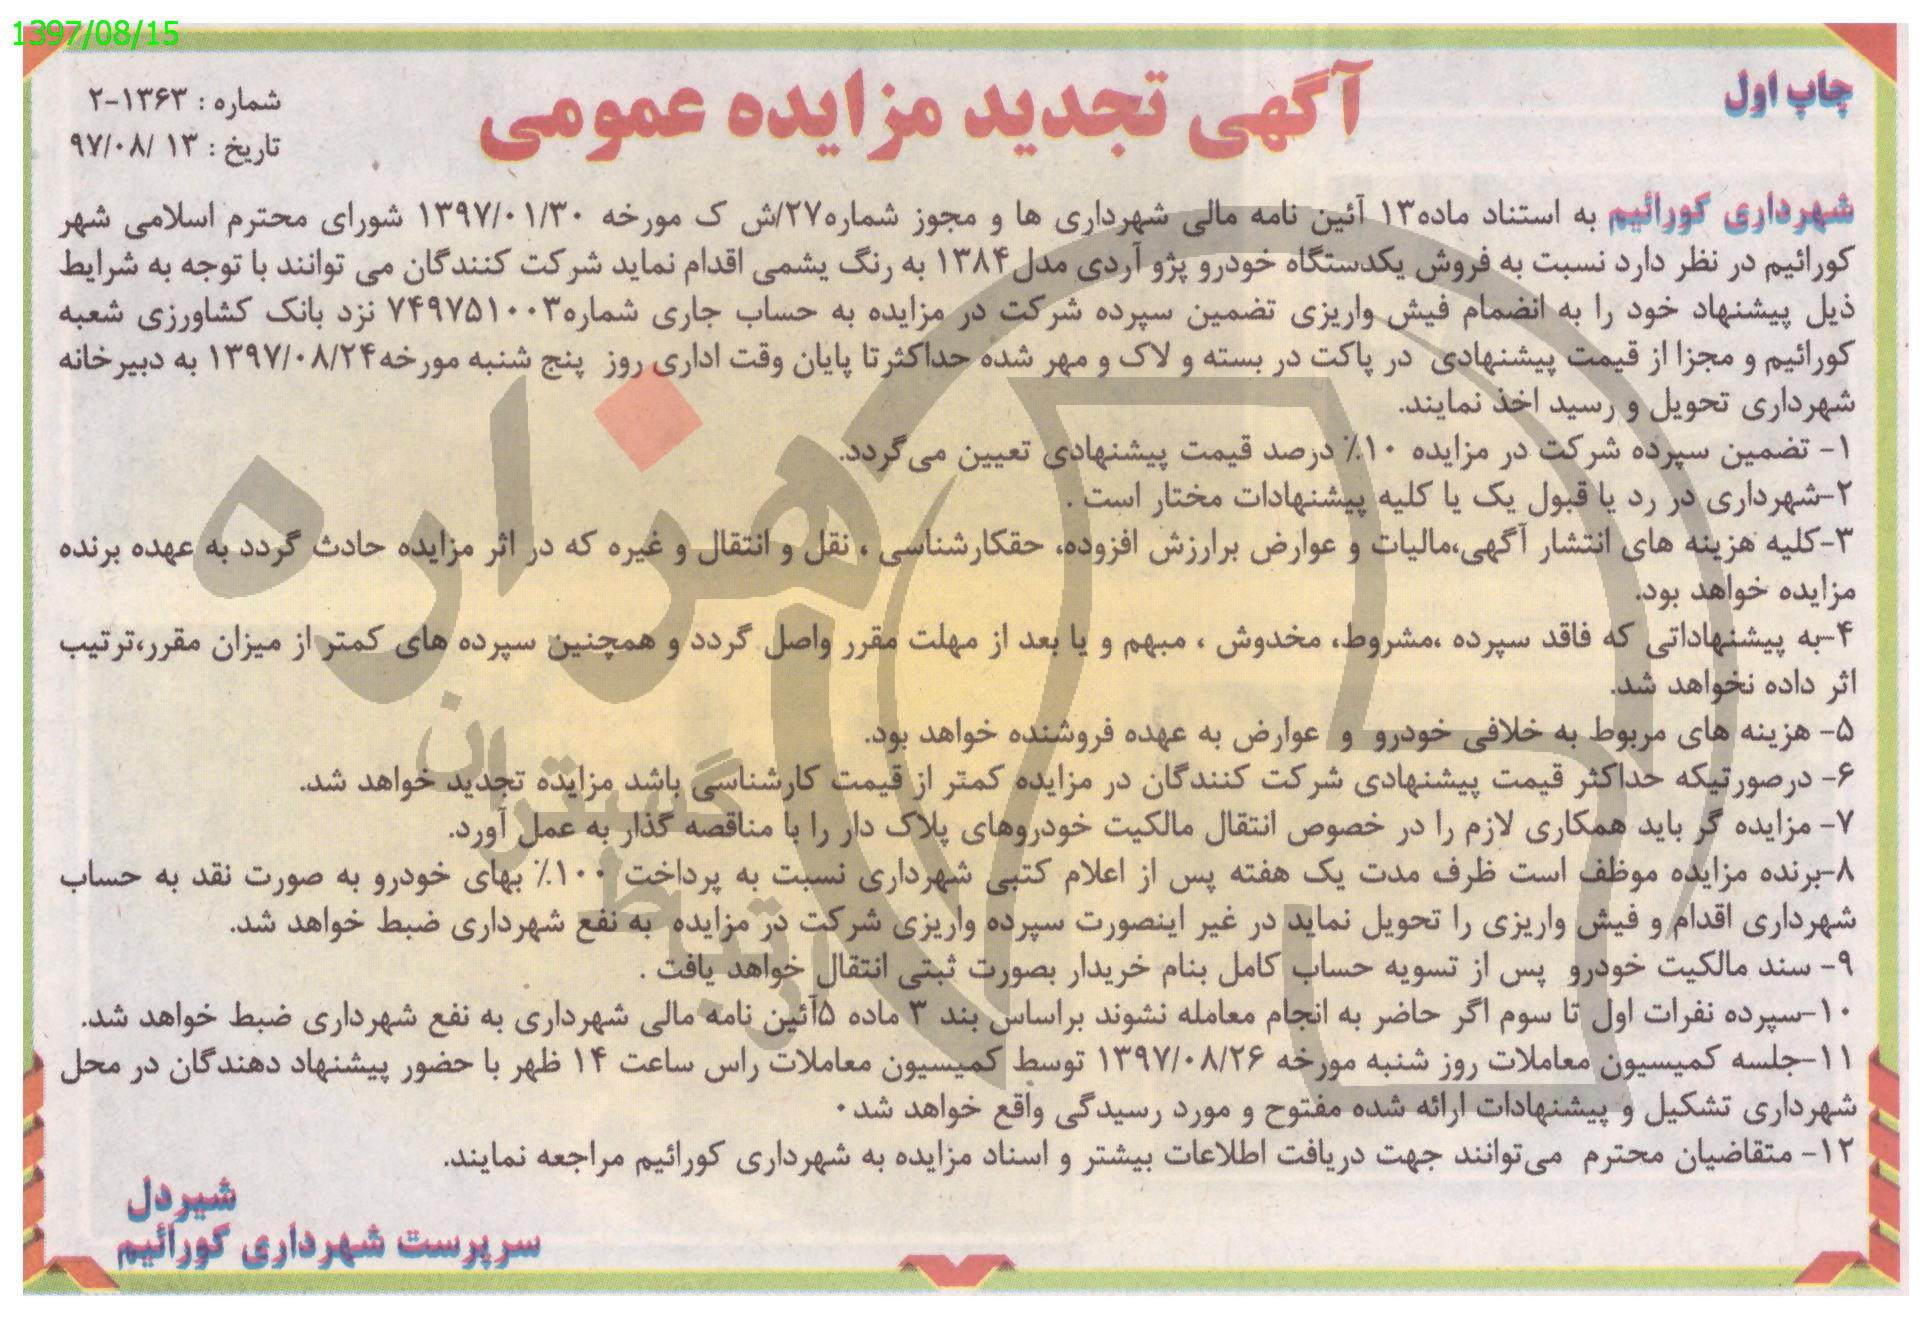 1397/08/15
چاپ اول
آگهی تجدید مزایده عمومی
شماره : ۱۳۶۳-۲
تاریخ : ۱۳ /۹۷/۰۸
شهرداری کورائیم به استناد ماده۱۳ آئین نامه مالی شهرداری ها و مجوز شماره۲۷/ش ک مورخه ۱۳۹۷/۰۱/۳۰ شورای محترم اسلامی شهر
کورائیم در نظر دارد نسبت به فروش یکدستگاه خودرو پژو آردی مدل۱۳۸۴ به رنگ یشمی اقدام نماید شرکت کنندگان می توانند با توجه به شرایط
ذیل پیشنهاد خود را به انضمام فیش واریزی تضمین سپرده شرکت در مزایده به حساب جاری شماره۷۴۹۷۵۱۰۰۳ نزد بانک کشاورزی شعبه
کورائیم و مجزا از قیمت پیشنهادی در پاکت در بسته و لاک و مهر شده حداکثرتا پایان وقت اداری روز پنج شنبه مورخه۱۳۹۷/۰۸/۲۴ به دبیرخانه
شهرداری تحویل و رسید اخذ نمایند.
۱- تضمین سپرده شرکت در مزایده ۱۰٪ درصد قیمت پیشنهادی تعیین می‌گردد.
۲-شهرداری در رد یا قبول یک یا کلیه پیشنهادات مختار است .
۳-کلیه هزینه های انتشار آگهی،مالیات و عوارض برارزش افزوده، حقکارشناسی ، نقل و انتقال و غیره که در اثر مزایده حادث گردد به عهده برنده
مزایده خواهد بود.
۴-به پیشنهاداتی که فاقد سپرده ،مشروط، مخدوش ، مبهم و یا بعد از مهلت مقرر واصل گردد و همچنین سپرده های کمتر از میزان مقرر،ترتیب
اثر داده نخواهد شد.
۵- هزینه های مربوط به خلافی خودرو و عوارض به عهده فروشنده خواهد بود.
۶- درصورتیکه حداکثر قیمت پیشنهادی شرکت کنندگان در مزایده کمتر از قیمت کارشناسی باشد مزایده تجدید خواهد شد.
۷- مزایده گر باید همکاری لازم را در خصوص انتقال مالکیت خودروهای پلاک دار را با مناقصه گذار به عمل آورد.
۸-برنده مزایده موظف است ظرف مدت یک هفته پس از اعلام کتبی شهرداری نسبت به پرداخت ۱۰۰٪ بهای خودرو به صورت نقد به حساب
شهرداری اقدام و فیش واریزی را تحویل نماید در غیر اینصورت سپرده واریزی شرکت در مزایده به نفع شهرداری ضبط خواهد شد.
۹- سند مالکیت خودرو پس از تسویه حساب کامل بنام خریدار بصورت ثبتی انتقال خواهد یافت .
۱۰-سپرده نفرات اول تا سوم اگر حاضر به انجام معامله نشوند براساس بند ۳ ماده ۵آئین نامه مالی شهرداری به نفع شهرداری ضبط خواهد شد.
۱۱-جلسه کمیسیون معاملات روز شنبه مورخه ۱۳۹۷/۰۸/۲۶ توسط کمیسیون معاملات راس ساعت ۱۴ ظهر با حضور پیشنهاد دهندگان در محل
شهرداری تشکیل و پیشنهادات ارائه شده مفتوح و مورد رسیدگی واقع خواهد شد۰
۱۲- متقاضیان محترم می‌توانند جهت دریافت اطلاعات بیشتر و اسناد مزایده به شهرداری کورائیم مراجعه نمایند.
شیردل
سرپرست شهرداری کورائیم
هزاره
گستران